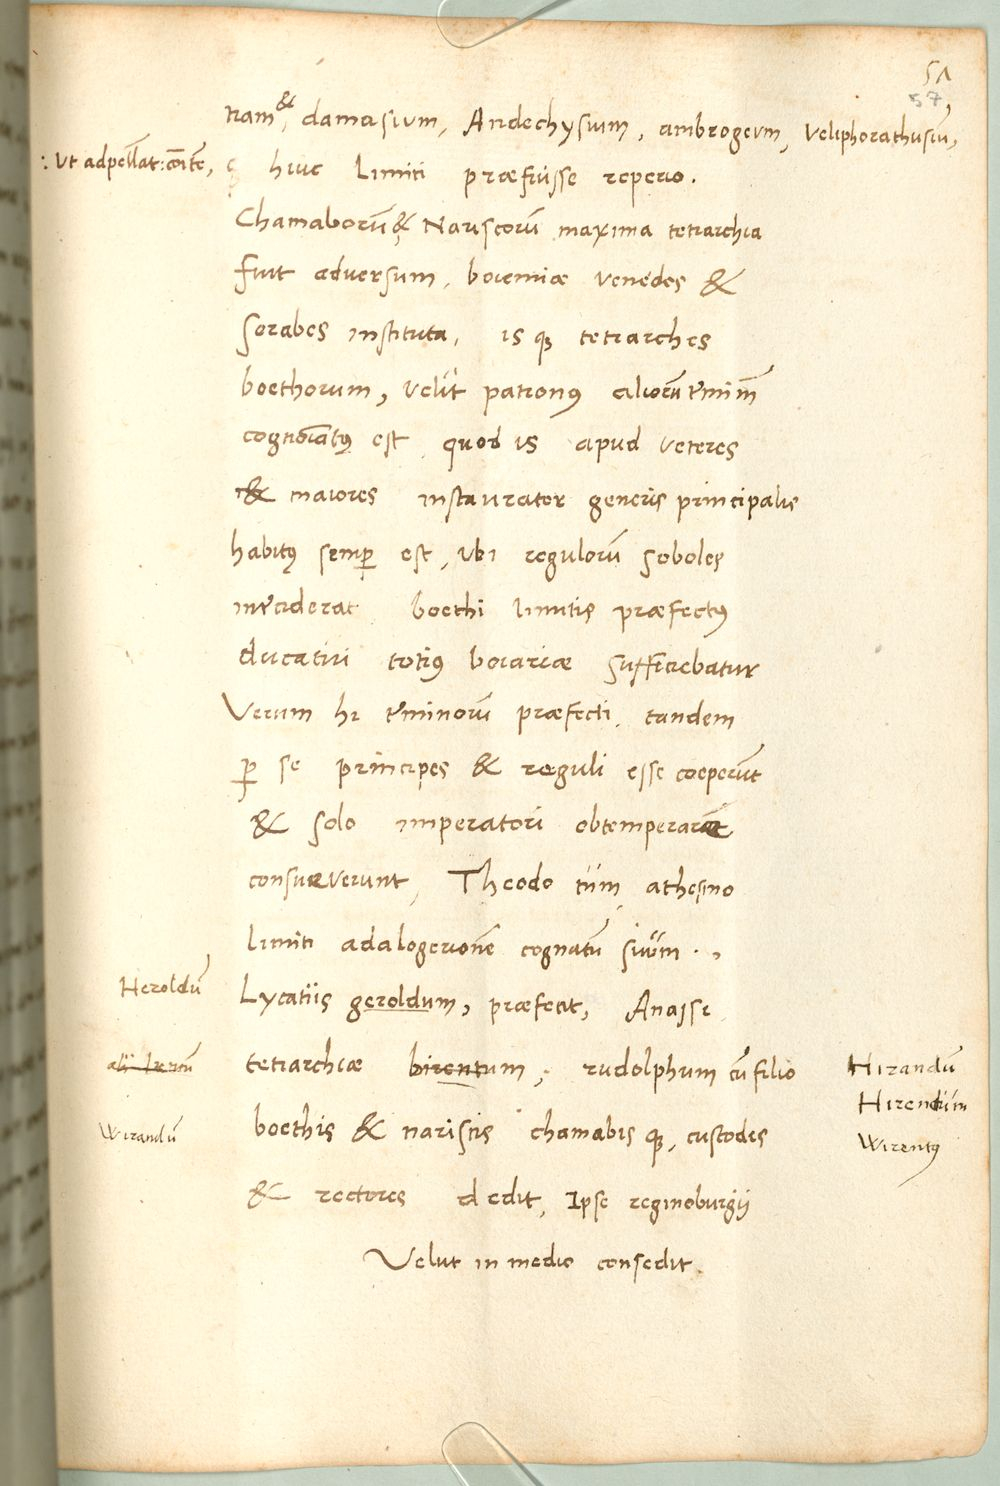 51
57
tram, & damasium, Andechysium, ambrogeum, Veliphorathusiū,
∴ Vt adpellāt: cōitē, ę huic Limiti præfuisse reperio.
Chamaborū & Nariscorū maxima tetrarchia
fuit adversum, boiemiæ venedes &
sorabes instituta, is qȝ tetrarches
boethorum, velut patronꝰ aliorū tͤminū
cognoīatꝰ est quod is apud veteres
& maiores instaurator generis principalis
habitꝰ semꝑ est, vbi regulorū soboles
intͤciderat boethi limitis præfectꝰ
ducatui totiꝰ boiariæ sufficiebatur
Verum hi tͤminorū præfecti, tandem
ꝑ se principes & reguli esse coeperūt
& solo imperatori obtemperare
consueverunt, Theodo tum athesino
Limiti adalogerionē cognatū suum.,
Heroldū
Lycatiis geroldum, præfecit, Anassi
alij
tetrarchiæ birentum, rudolphum cū filio
Hirandū
Hirentum
Wirandū
boethis & nariscis chamabis qȝ, custodes
Wirentꝰ
& rectores dedit, Ipse reginoburgij
Velut in medio consedit.